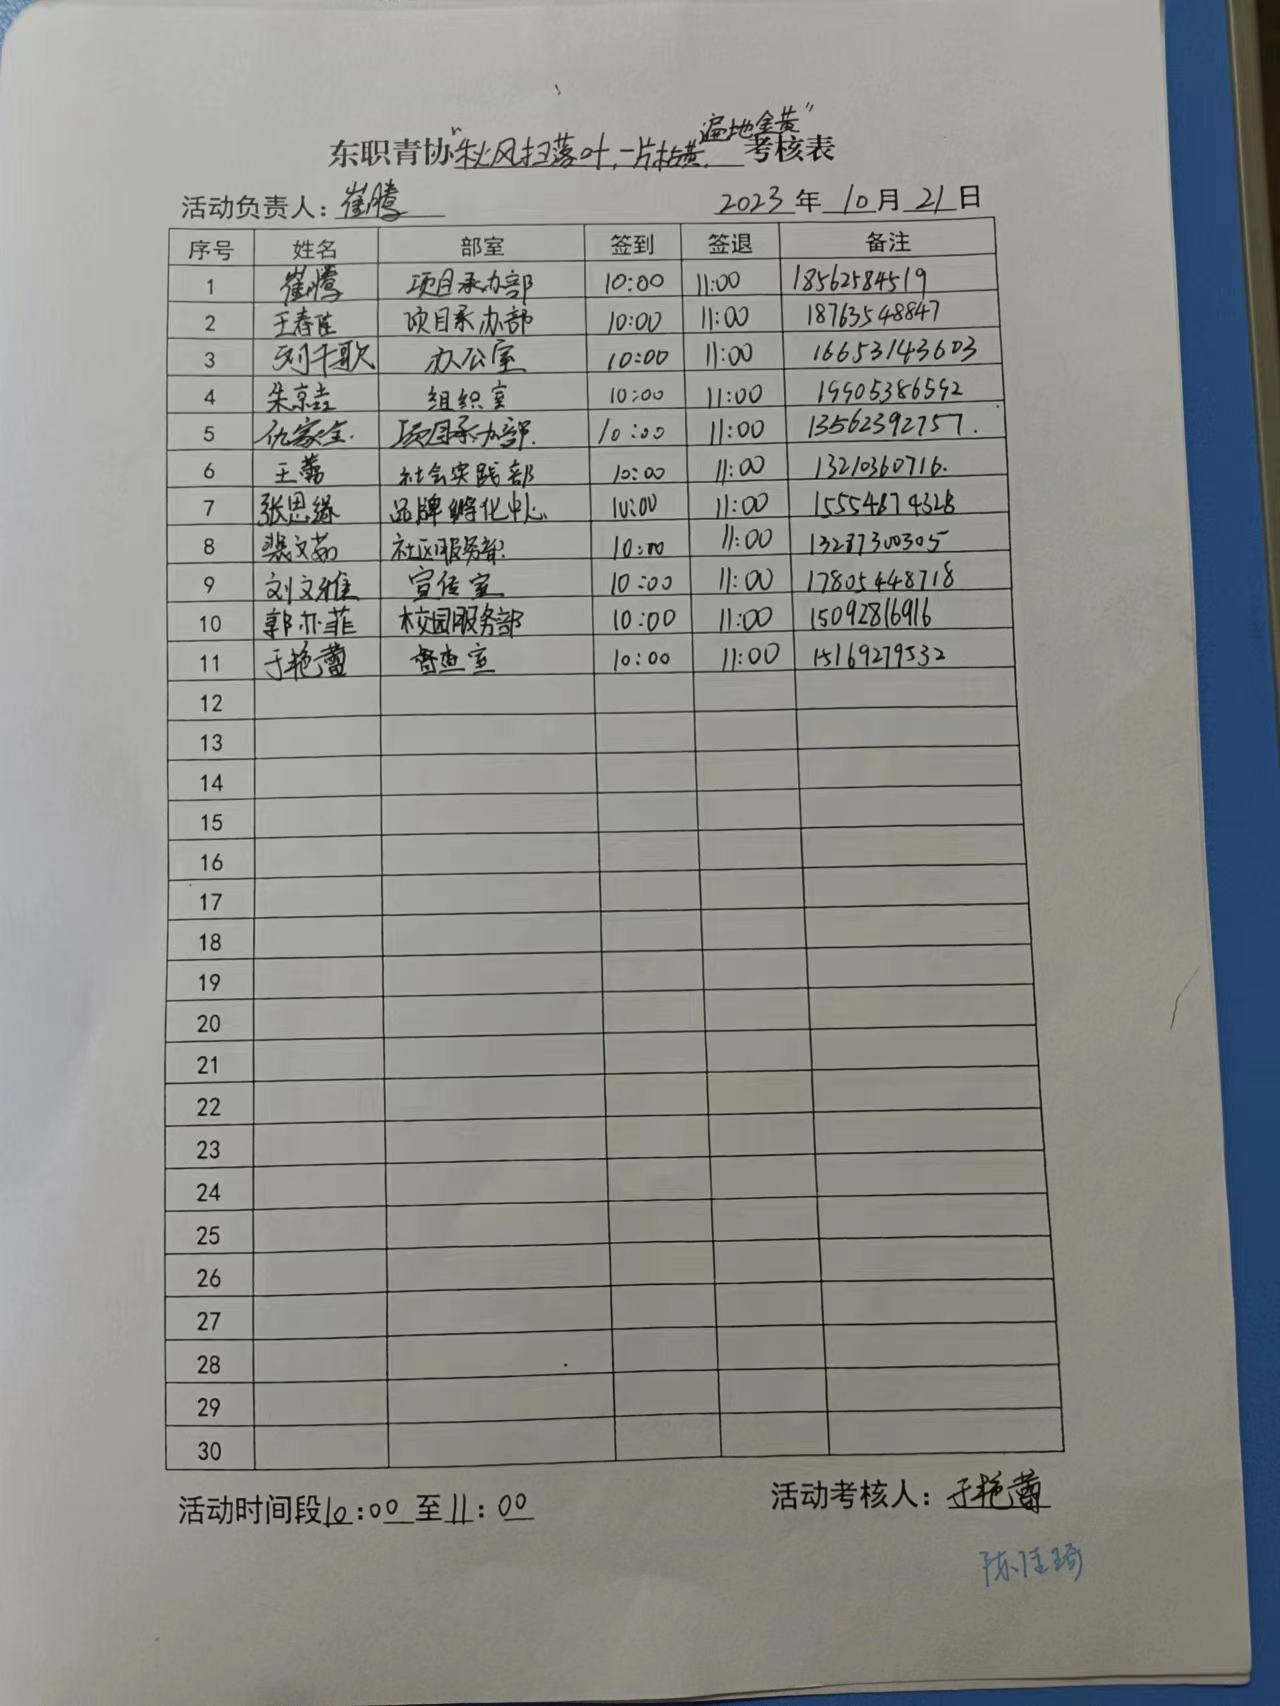 东职青协"秋风扫落叶,一片枯黄,遍地金黄"考核表
活动负责人：崔腾 2023年10月21日
序号 姓名 部室 签到 签退 备注
1 崔腾 项目承办部 10:00 11:00 18562584519
2 王春 项目承办部 10:00 11:00 18763548847
3 刘千歌 办公室 10:00 11:00 16653143603
4 朱京垚 组织室 10:00 11:00 19905386592
5 仇家宝 项目承办部 10:00 11:00 13562392757.
6 王蕾 社会实践部 10:00 11:00 13210360716.
7 张思缘 品牌孵化中心 10:00 11:00 15554874328
8 裴文茹 社区服务部 10:00 11:00 13287300305
9 刘文雅 宣传室 10:00 11:00 17805448718
10 郭亦菲 校园服务部 10:00 11:00 15092816916
11 于艳蕾 督查室 10:00 11:00 15169279532
12
13
14
15
16
17
18
19
20
21
22
23
24
25
26
27
28
29
30
活动时间段10:00至11:00 活动考核人：于艳蕾
陈佳琦